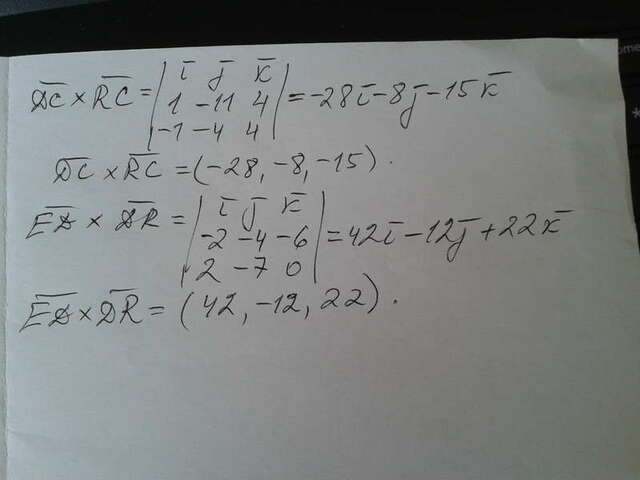 D̅C̅ × R̅C̅ = | i̅ j̅ k̅ |
| 1 -11 4 | = -28i̅ - 8j̅ - 15k̅
| -1 -4 4 |
D̅C̅ × R̅C̅ = (-28, -8, -15).
E̅D̅ × D̅R̅ = | i̅ j̅ k̅ |
| -2 -4 -6 | = 42i̅ - 12j̅ + 22k̅
| 2 -7 0 |
E̅D̅ × D̅R̅ = (42, -12, 22).